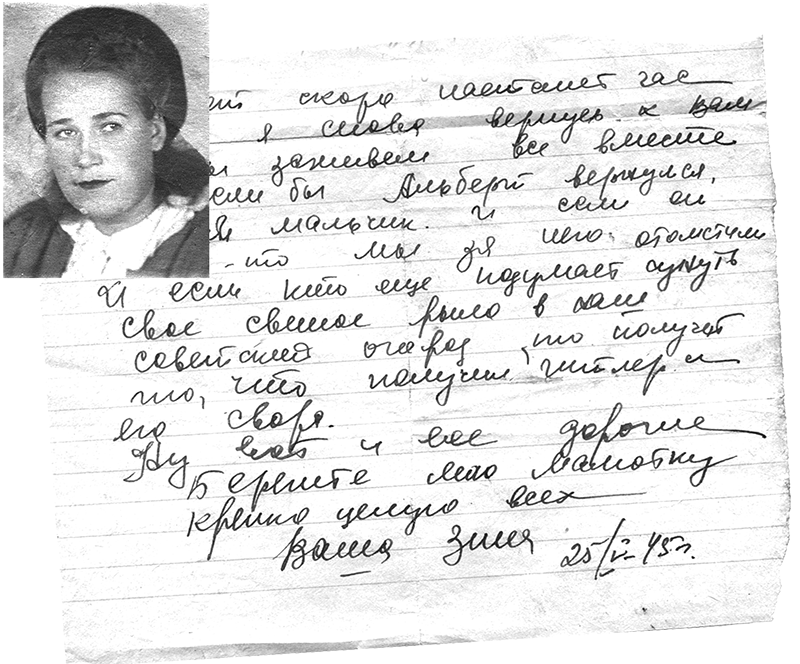 скоро настанет час
я снова вернусь к вам
заживем все вместе
если бы Альберт вернулся,
мальчик. И если он
что мы за него отомстили
И если кто еще подумает сунуть
свое свиное рыло в наш
советский огород, то получит
то, что получил гитлер и
его свора.
Ну вот и все дорогие
Берегите мою мамочку
крепко целую всех
Ваша Зина 25/V-45г.